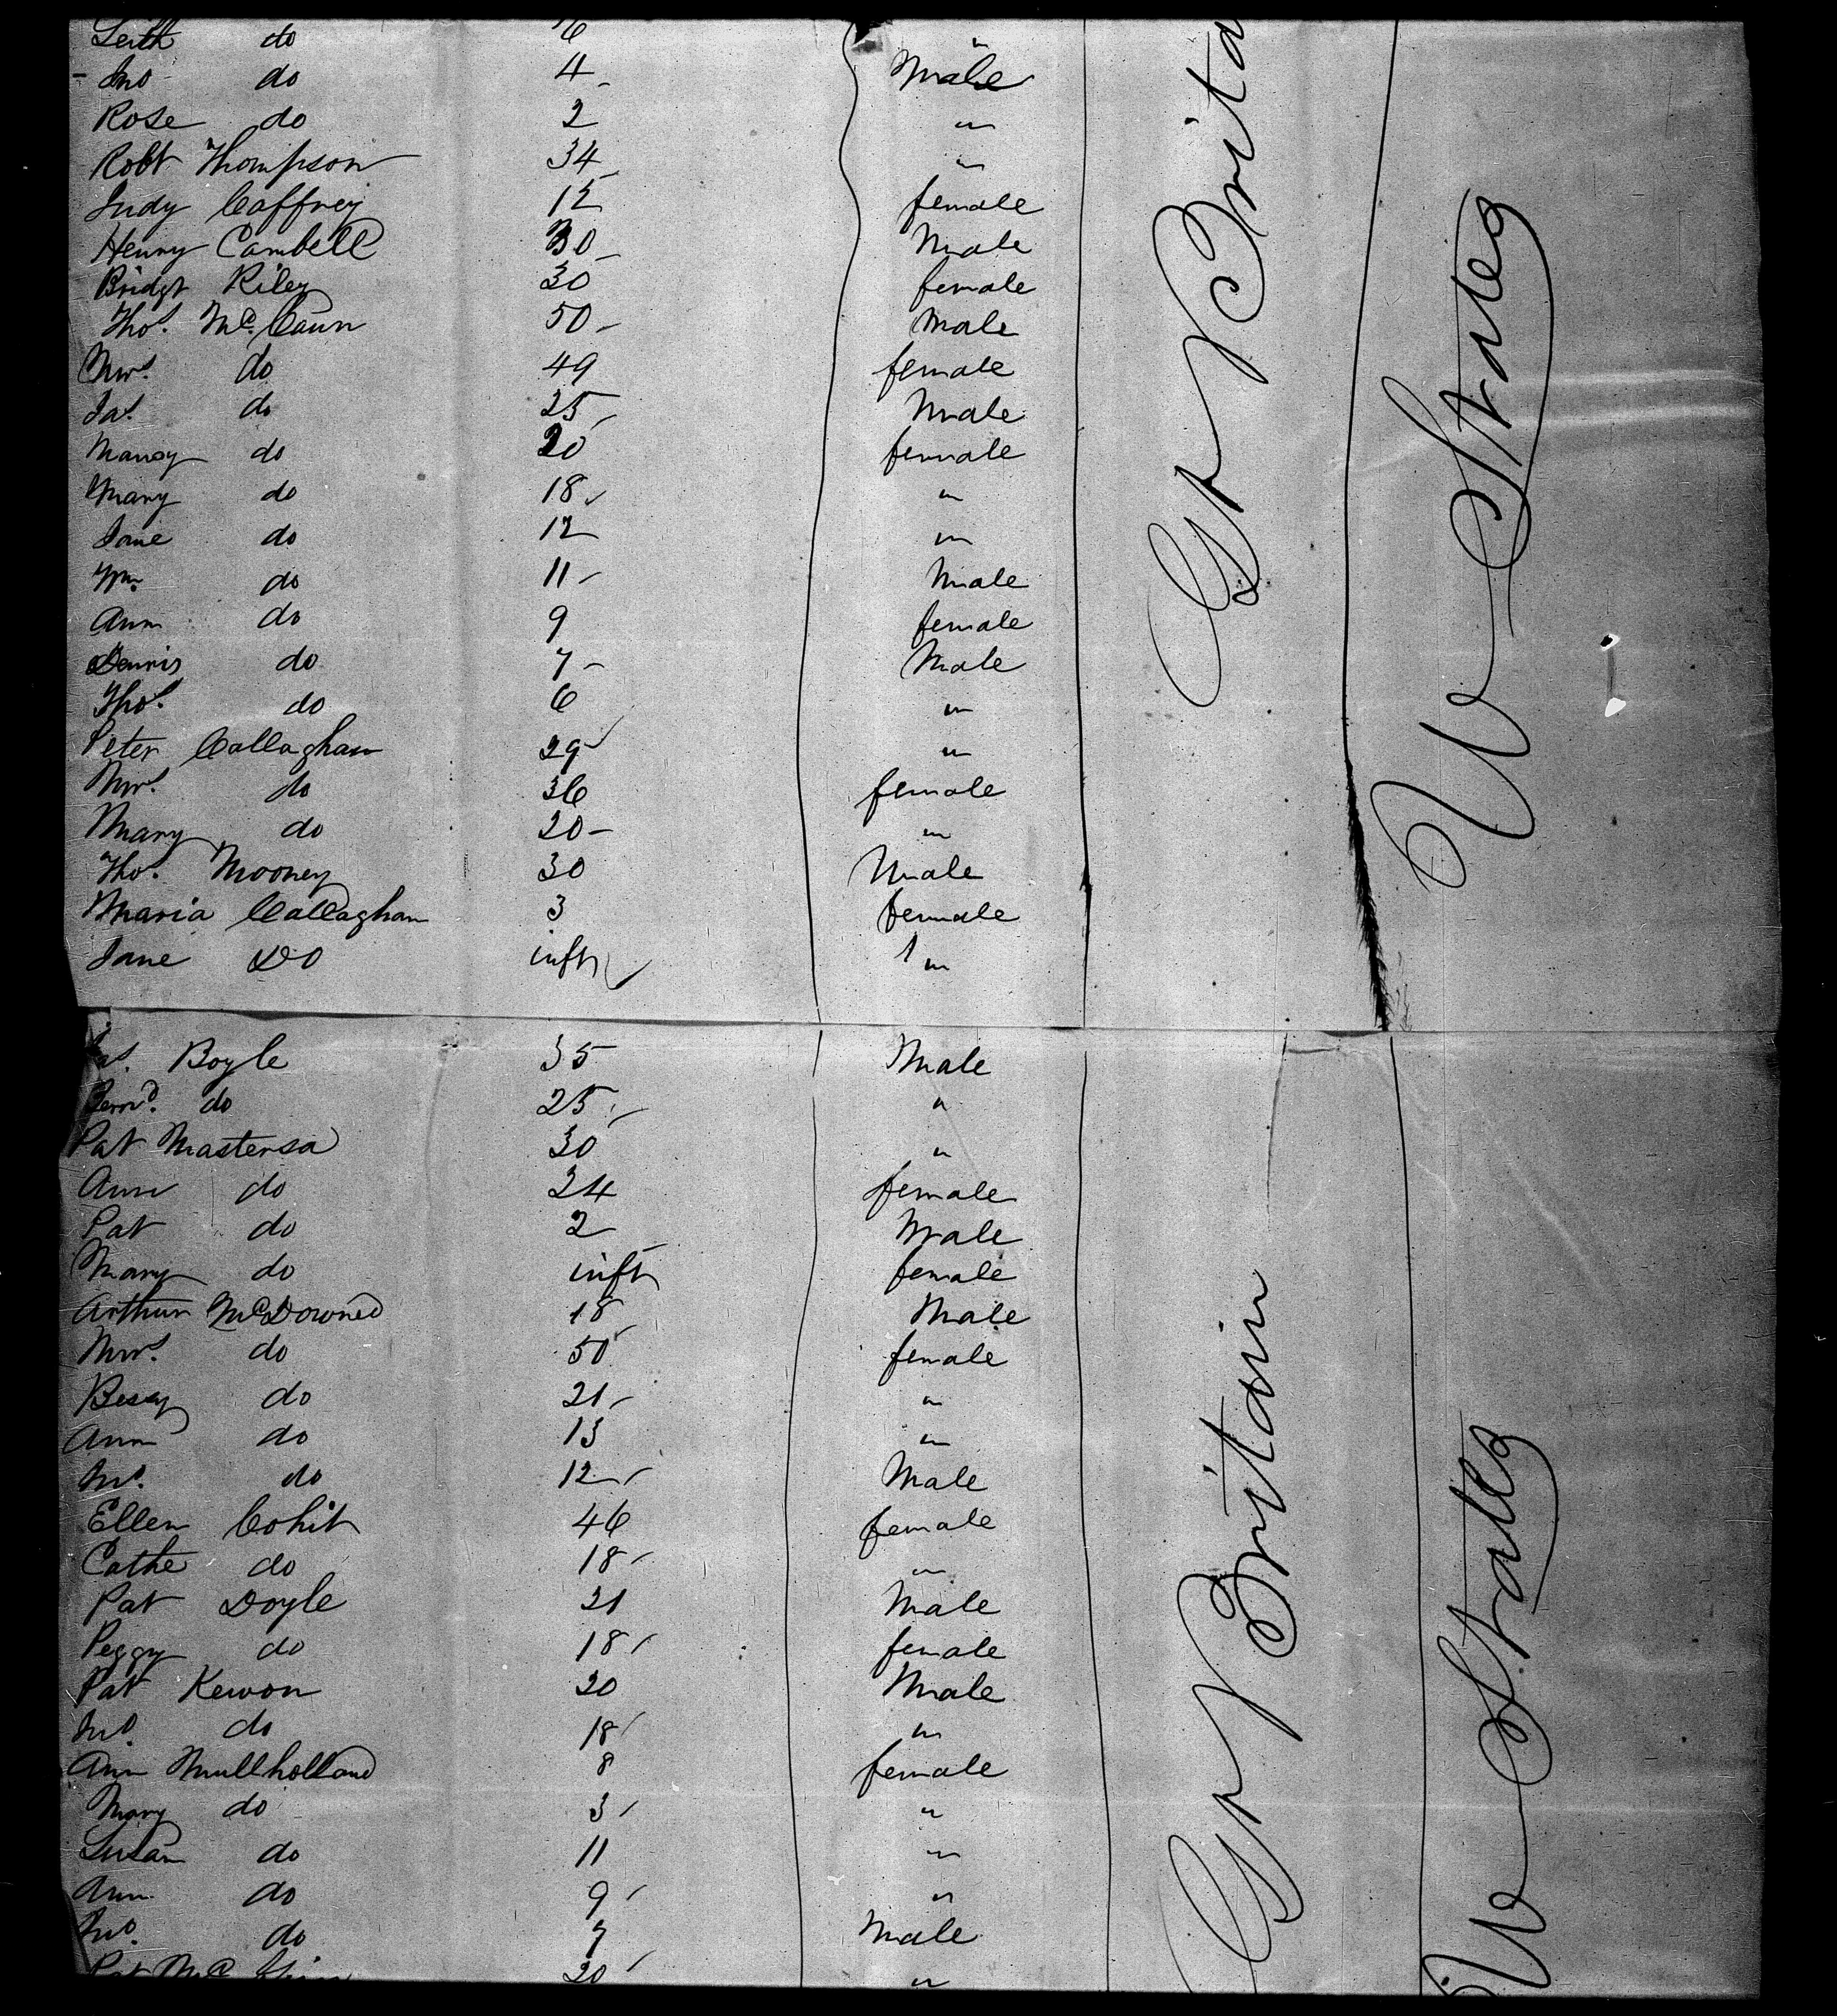 do 6 "
Jno do 4 Male
Rose do 2 "
Robt Thompson 34 "
Judy Caffrey 12 female
Henry Cambell 30 Male
Bridgt Riley 30 female
Thos. McCann 50 Male
Mrs. do 49 female
Jas. do 25 Male
Nancy do 20 female
Mary do 18 "
Jane do 12 "
Wm do 11 Male
Ann do 9 female
Dennis do 7 Male
Thos. do 6 "
Peter Callaghan 29 "
Mrs. do 36 female
Mary do 20 "
Thos. Mooney 30 Male
Maria Callaghan 3 female
Jane Do inft "
Gt Brita
U States
Boyle 35 Male
do 25 "
Pat Masterson 30 "
Ann do 24 female
Pat do 2 Male
Mary do inft female
Arthur 18 Male
Mrs. do 50 female
Bessy do 21 "
Ann do 13 "
Jno. do 12 Male
Ellen 46 female
Cathe do 18 "
Pat Doyle 21 Male
Peggy do 18 female
Pat Kewon 20 Male
Jno. do 18 "
Ann Mullholland 8 female
Mary do 3 "
Susan do 11 "
Ann do 9 "
Jno. do 7 Male
Pat 20 "
Gt Britain
U States